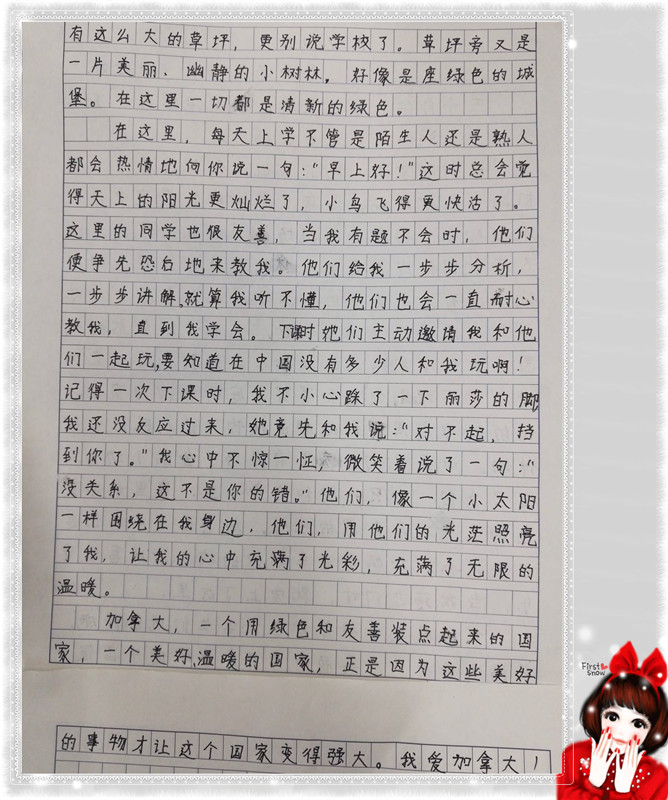 有这么大的草坪，更别说学校了。草坪旁又是
一片美丽、幽静的小树林，好像是座绿色的城
堡。在这里一切都是清新的绿色。
在这里，每天上学不管是陌生人还是熟人
都会热情地向你说一句：“早上好！”这时总会觉
得天上的阳光更灿烂了，小鸟飞得更快活了。
这里的同学也很友善，当我有题不会时，他们
便争先恐后地来教我。他们给我一步步分析，
一步步讲解，就算我听不懂，他们也会一直耐心
教我，直到我学会。下课时她们主动邀请我和他
们一起玩，要知道在中国没有多少人和我玩啊！
记得一次下课时，我不小心踩了一下丽莎的脚
我还没反应过来，她竟先和我说：“对不起，挡
到你了。”我心中不惊一怔，微笑着说了一句：“
没关系，这不是你的错。”他们，像一个小太阳
一样围绕在我身边，他们，用他们的光茫照亮
了我，让我的心中充满了光彩，充满了无限的
温暖。
加拿大，一个用绿色和友善装点起来的国
家，一个美好、温暖的国家，正是因为这些美好
的事物才让这个国家变得强大。我爱加拿大！
First
Snow